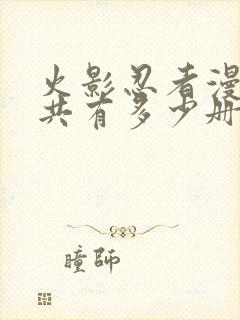 火影忍者漫
共有多少册
瞳师